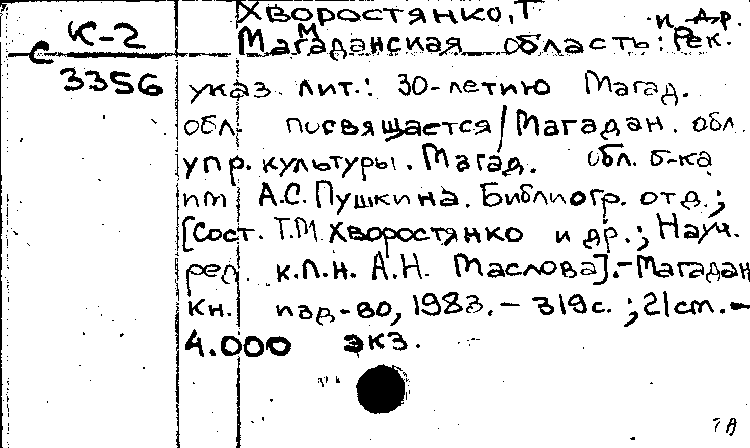 Хворостянко, Т
М и др.
К-2
Магаданская область: Рек.
С
3356
указ. лит.: 30-летию Магад.
обл. посвящается / Магадан. обл.
упр. культуры. Магад. обл. б-ка
им А.С. Пушкина. Библиогр. отд.;
[Сост. Т.М. Хворостянко и др.; Науч.
ред. к.п.н. А.Н. Маслова]. - Магадан
Кн. изд-во, 1983. - 319с.; 21см. -
4.000 экз.